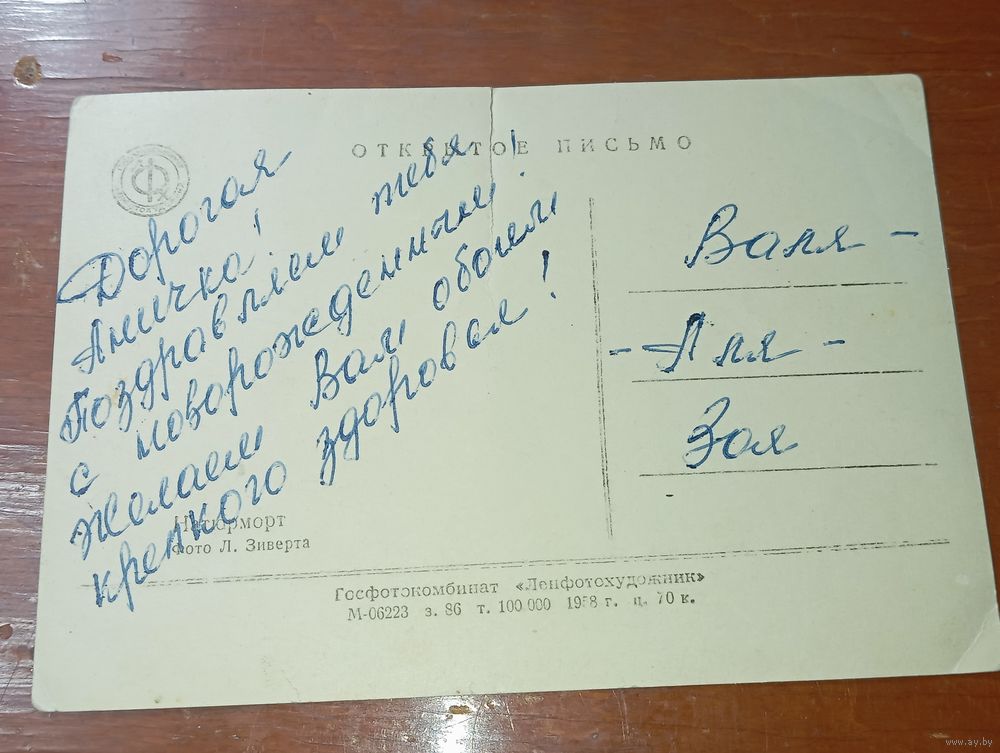 ОТКРЫТОЕ ПИСЬМО
Дорогая
Аничка!
Поздравляем тебя
с новорожденным!
желаем Вам обоим
крепкого здоровья!
Валя -
- Аля -
Зоя
Натюрморт
Фото Л. Зиверта
Госфотокомбинат «Ленфотохудожник»
М-06223 з. 86 т. 100 000 1958 г. ц. 70 к.
www.ay.by